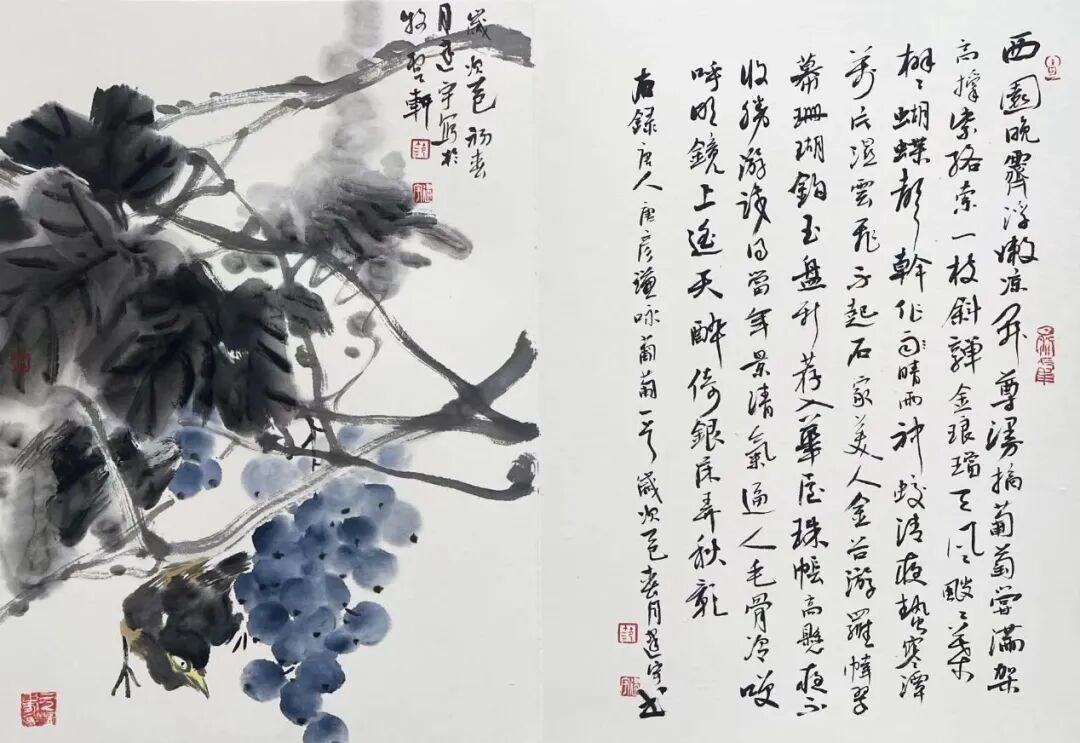 西園晚霽浮嫩凉開尊漫摘葡萄嘗滿架
高撑紫絡索一枝斜嚲金琅璫天風颼〻葉
栩〻蝴蝶聲幹作雨晴雨神蛟清夜蟄寒潭
萬片濕雲飛不起石家美人金谷游羅幃翠
幕珊瑚鈎玉盤新荐入華屋珠帳高懸夜不
收勝游記得當年景清氣逼人毛骨冷笑
呼明鏡上遥天醉倚銀床弄秋影
右録唐人唐彦謙咏葡萄一首歲次乙巳春月宇書
歲次乙巳初春
月宇寫於
牧軒